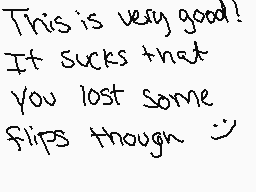 This is very good!
It sucks that
you lost some
flips though :)